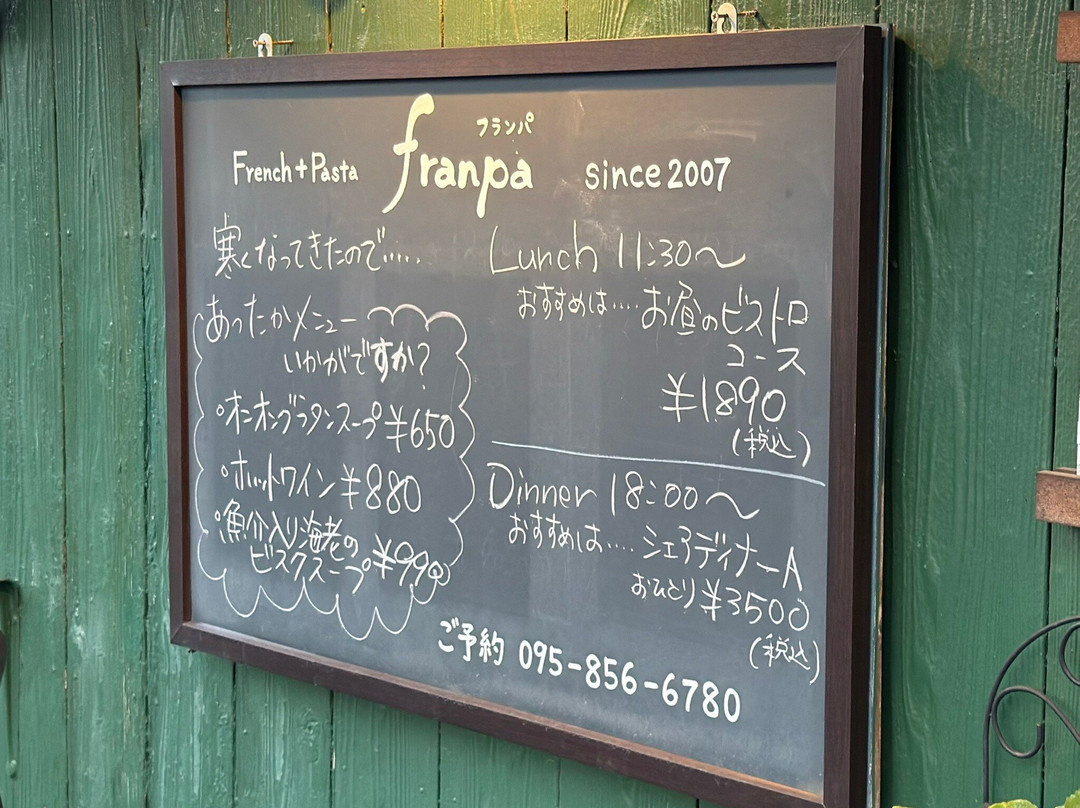 フランパ
French+Pasta franpa since2007
寒くなってきたので.....
あったかメニュー
いかがですか?
・オニオングラタンスープ ¥650
・ホットワイン ¥880
・魚介入り海老の
ビスクスープ ¥990
Lunch 11:30〜
おすすめは....お昼のビストロ
コース
¥1890
(税込)
Dinner 18:00〜
おすすめは....シェアディナーA
おひとり ¥3500
(税込)
ご予約 095-856-6780